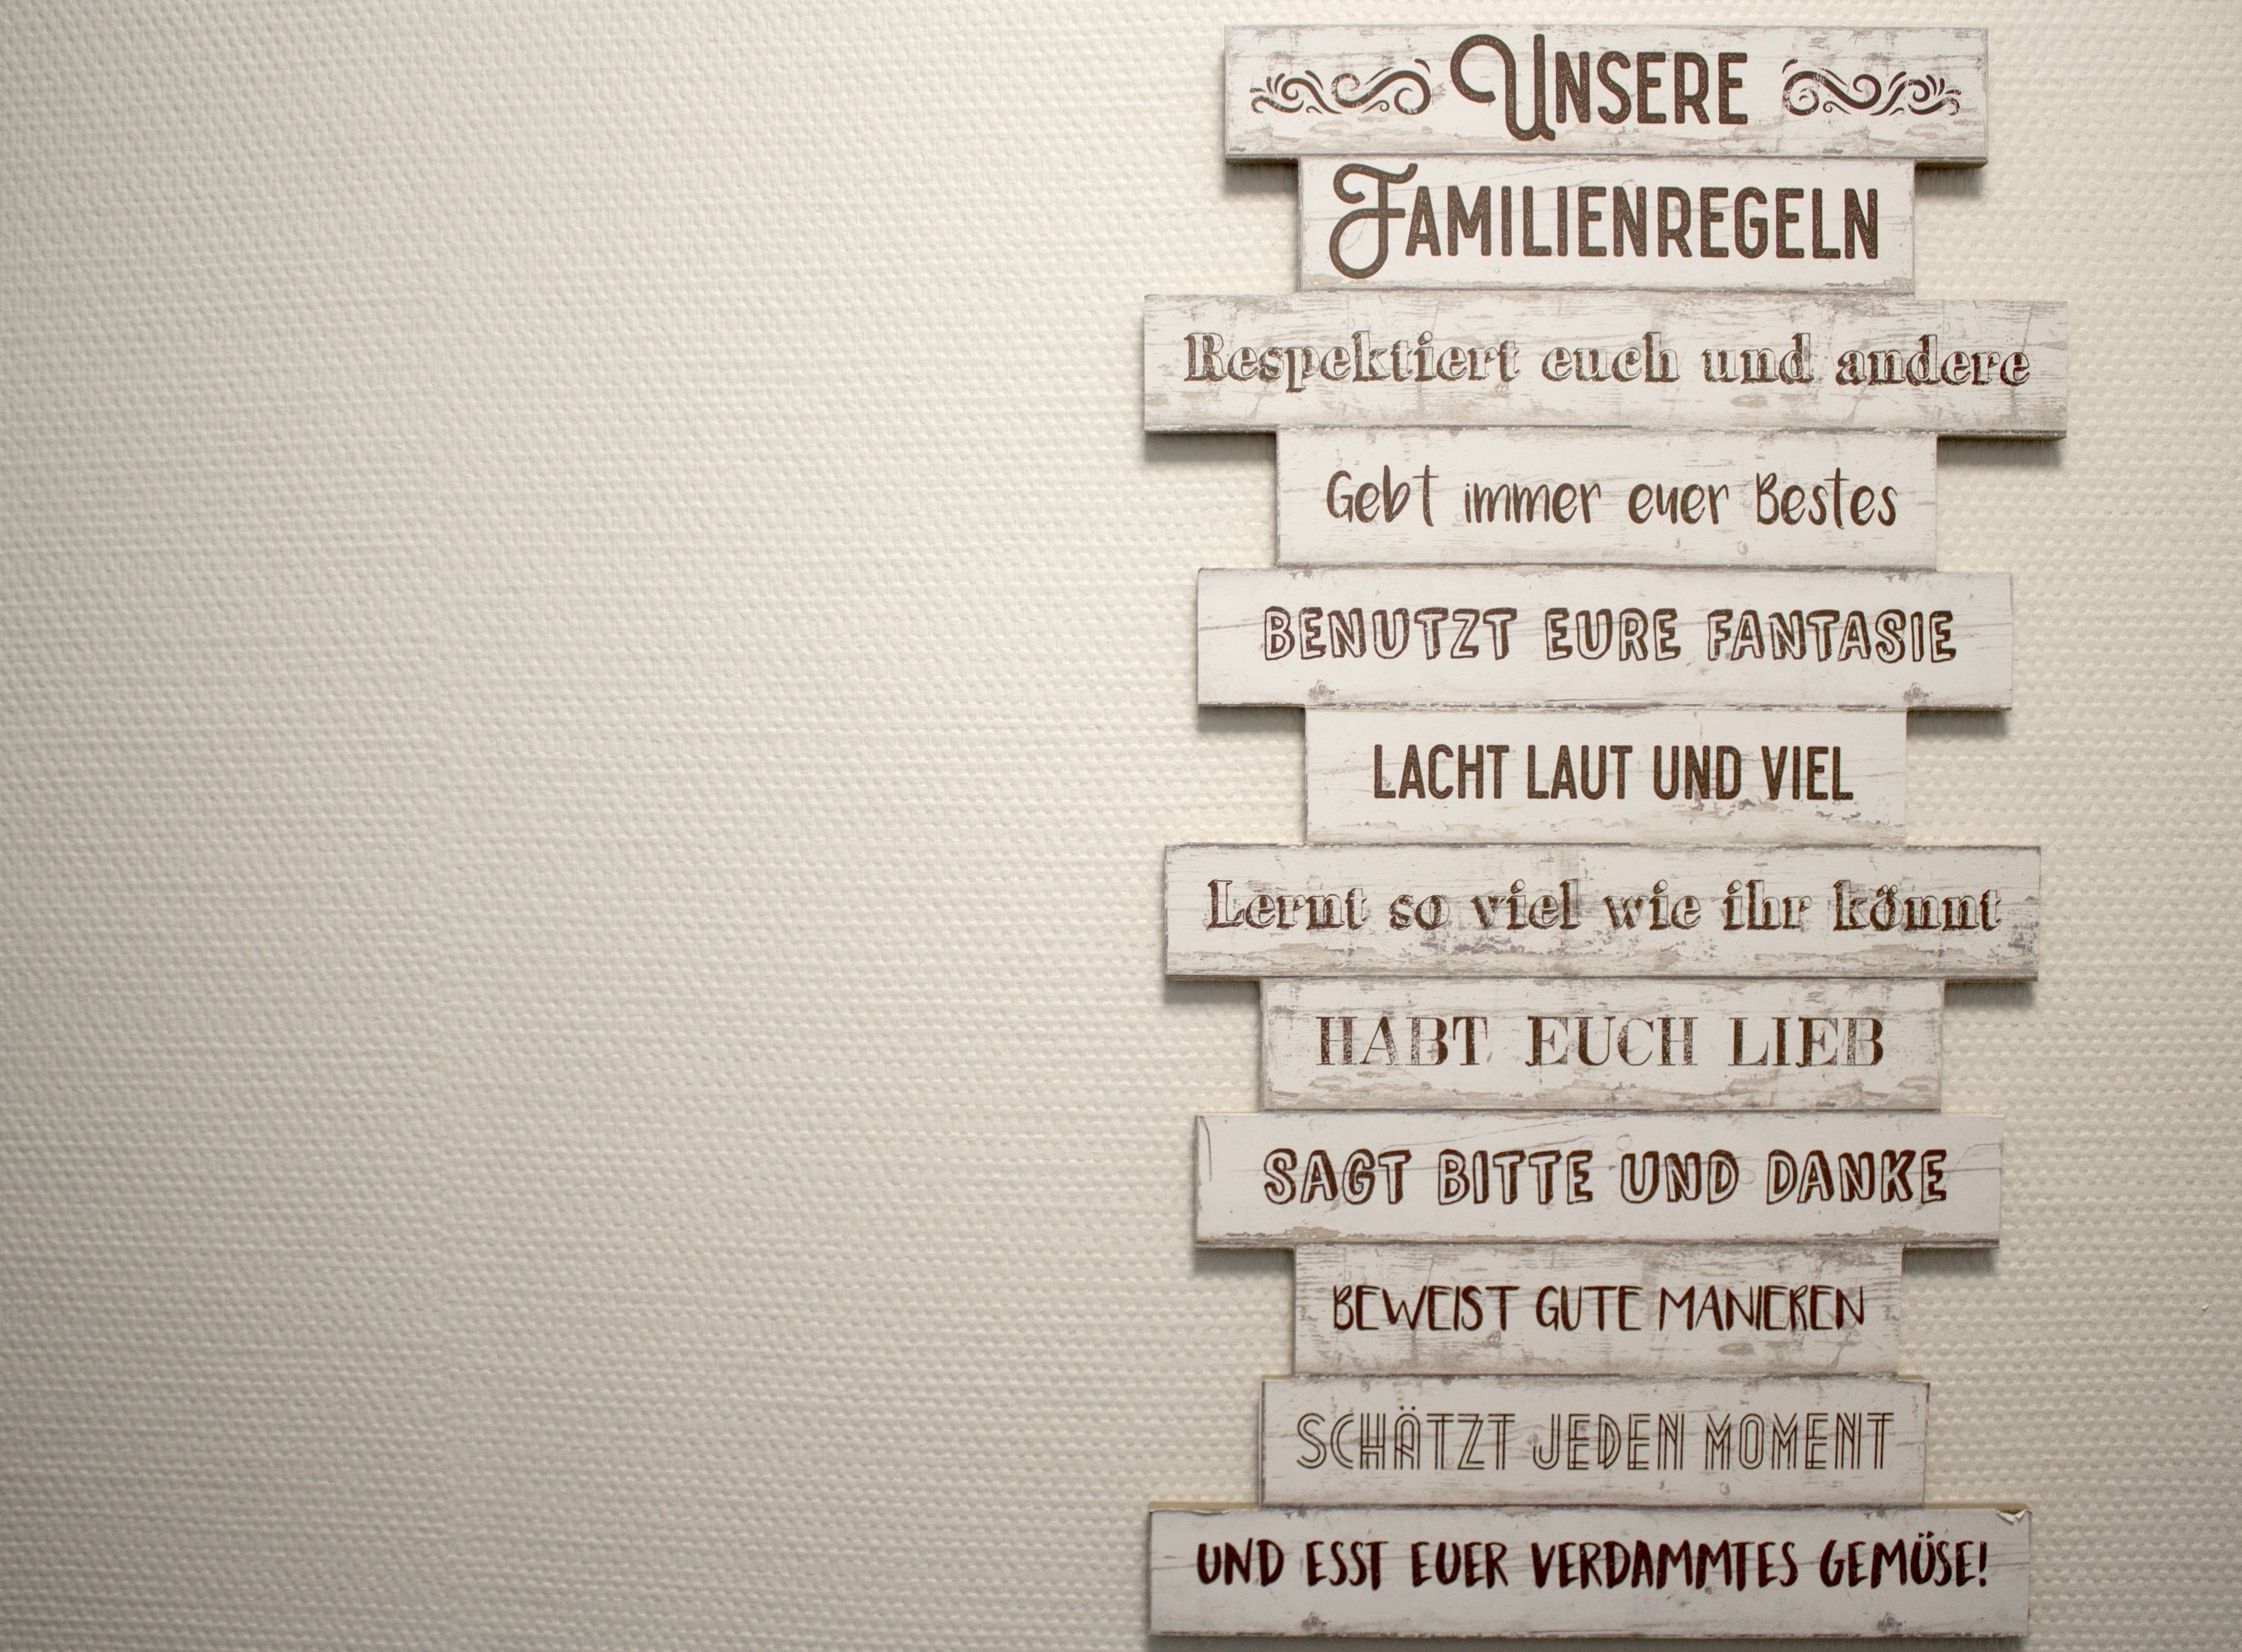 Unsere
Familienregeln
Respektiert euch und andere
Gebt immer euer Bestes
BENUTZT EURE FANTASIE
LACHT LAUT UND VIEL
Lernt so viel wie ihr könnt
HABT EUCH LIEB
SAGT BITTE UND DANKE
BEWEIST GUTE MANIEREN
SCHÄTZT JEDEN MOMENT
UND ESST EUER VERDAMMTES GEMÜSE!